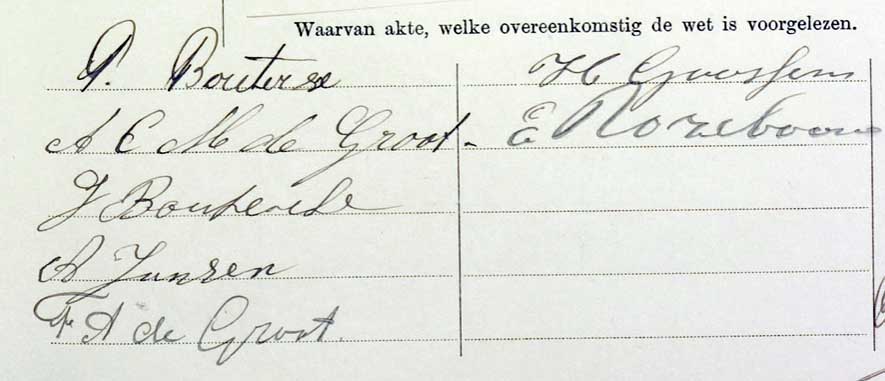 Waarvan akte, welke overeenkomstig de wet is voorgelezen.
P. Bouterse
A C M de Groot
J Bouterse
A Jansen
F A de Groot.
H Goossens
E Rozeboom